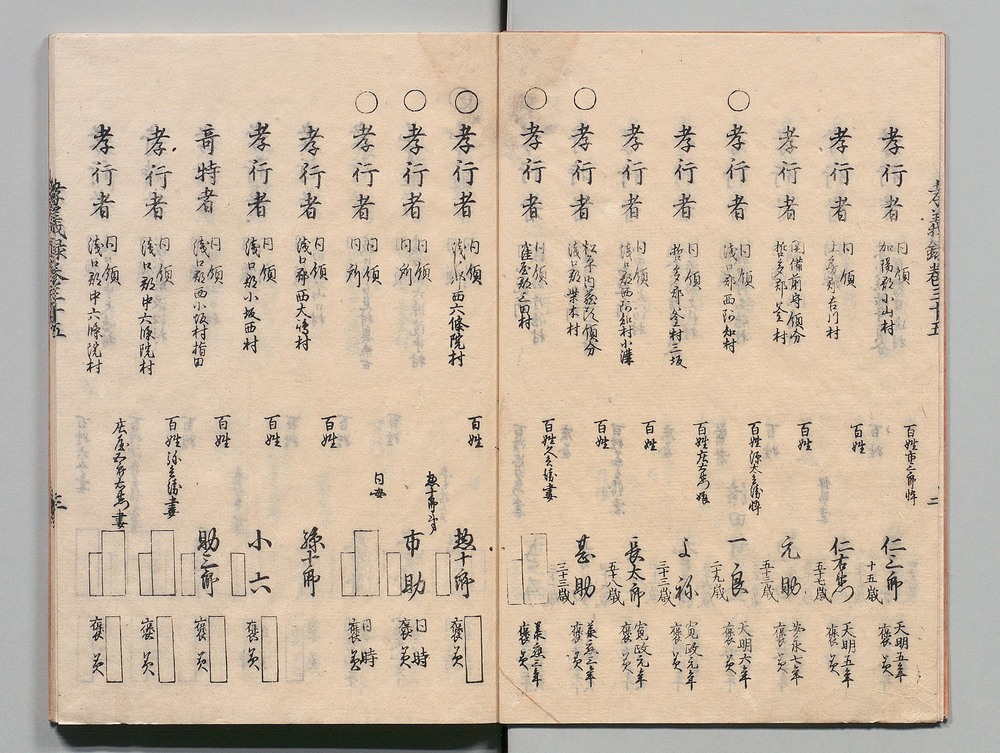 孝義録巻三十五
孝行者
同領
賀陽郡小山村
百姓市三郎悴
仁三郎
十五歳
天明五年
褒美
孝行者
同領
上房郡吉川村
百姓
仁右衛門
五十七歳
天明五年
褒美
孝行者
関備前守領分
哲多郡釜村
百姓
元助
五十三歳
安永七年
褒美
○孝行者
同領
浅口郡西阿知村
百姓源太兵衛悴
一良
二十九歳
天明六年
褒美
孝行者
同領
哲多郡釜村三坂
百姓庄右衛門娘
よね
三十三歳
寛政元年
褒美
孝行者
同領
浅口郡西阿知村小溝
百姓
長太郎
五十八歳
寛政元年
褒美
○孝行者
松平内蔵頭領分
浅口郡柴木村
百姓
甚助
三十三歳
承応三年
褒美
○孝行者
同領
窪屋郡三田村
百姓久兵衛妻
承応三年
褒美
○孝行者
同領
浅口郡西六條院村
百姓
惣十郎
褒美
○孝行者
同領
同所
惣十郎弟
市助
同時
褒美
○孝行者
同領
同所
同妻
同時
褒美
孝行者
同領
浅口郡西大嶋村
百姓
孫十郎
孝行者
同領
浅口郡小坂西村
百姓
小六
褒美
奇特者
同領
浅口郡西小坂村指田
百姓
助三郎
褒美
孝行者
同領
浅口郡中六條院村
百姓弥兵衛妻
褒美
孝行者
同領
浅口郡中六條院村
褒美
孝義録巻三十五